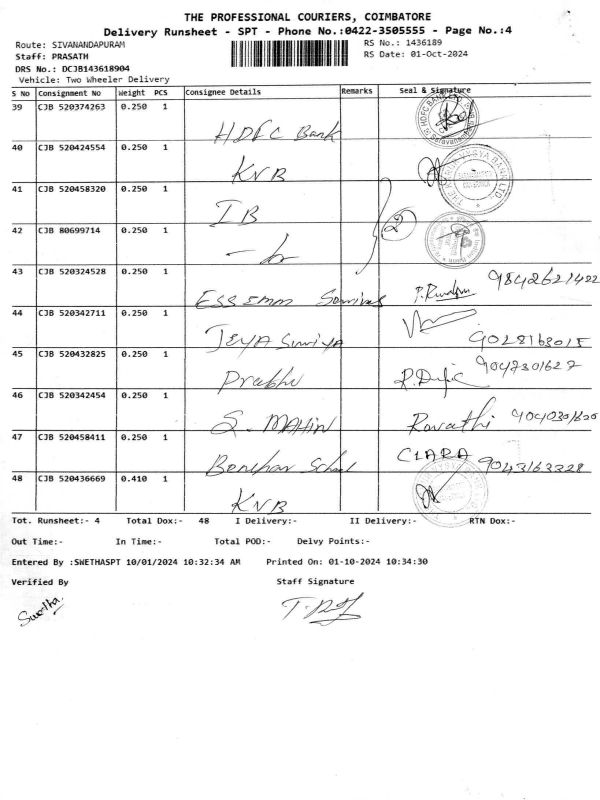 THE PROFESSIONAL COURIERS, COIMBATORE
Delivery Runsheet - SPT - Phone No.:0422-3505555 - Page No.:4
Route: SIVANANDAPURAM
RS No.: 1436189
Staff: PRASATH
RS Date: 01-Oct-2024
DRS No.: DCJB143618904
Vehicle: Two Wheeler Delivery
S No Consignment No Weight PCS Consignee Details Remarks Seal & Signature
39 CJB 520374263 0.250 1 HDFC Bank
40 CJB 520424554 0.250 1 KVB
41 CJB 520458320 0.250 1 IB 2
42 CJB 80699714 0.250 1
43 CJB 520324528 0.250 1 9842621422
44 CJB 520342711 0.250 1 JEYA Suriya 9028163015
45 CJB 520432825 0.250 1 Prabhu 9047301627
46 CJB 520342454 0.250 1 S. MAHIN Revathi
47 CJB 520458411 0.250 1 School CLARA 9043163328
48 CJB 520436669 0.410 1 KVB
Tot. Runsheet:- 4 Total Dox:- 48 I Delivery:- II Delivery:- RTN Dox:-
Out Time:- In Time:- Total POD:- Delvy Points:-
Entered By :SWETHASPT 10/01/2024 10:32:34 AM Printed On: 01-10-2024 10:34:30
Verified By Staff Signature
Swetha